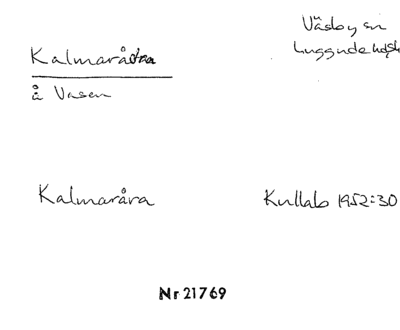 Kalmaråra
å Vasen
Väsby sn
Luggude hd
Kalmaråra
Kullab 1952:30
Nr 21769